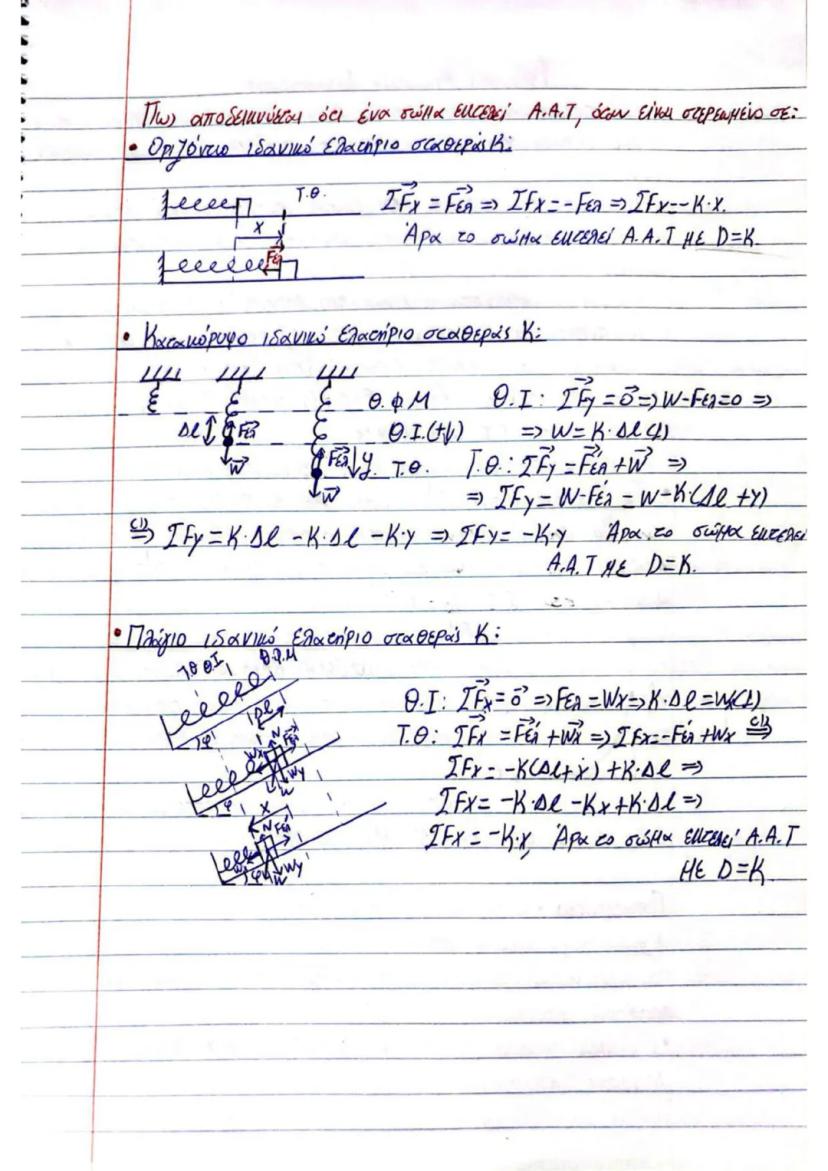 Πως αποδεικνύεται ότι ένα σώμα εκτελεί Α.Α.Τ, όταν είναι στερεωμένο σε:
• Οριζόντιο ιδανικό ελατήριο σταθεράς Κ:
Τ.Θ.
ΣF⃗x = F⃗ελ ⇒ ΣFx = -Fελ ⇒ ΣFx = -K·x.
x
Άρα το σώμα εκτελεί Α.Α.Τ με D=K.
F⃗ελ
• Κατακόρυφο ιδανικό ελατήριο σταθεράς Κ:
Θ.Φ.Μ
Θ.Ι: ΣF⃗y = 0⃗ ⇒ W-Fελ=0 ⇒
Δl F⃗ελ Θ.Ι.(+↓)
⇒ W = K·Δl (1)
W⃗ F⃗ελ y Τ.Θ.
Τ.Θ.: ΣF⃗y = F⃗ελ' + W⃗ ⇒
W⃗
⇒ ΣFy = W-Fελ' = W-K(Δl + y)
(1)⇒ ΣFy = K·Δl - K·Δl - K·y ⇒ ΣFy = -K·y Άρα το σώμα εκτελεί
Α.Α.Τ με D=K.
• Πλάγιο ιδανικό ελατήριο σταθεράς Κ:
Τ.Θ Θ.Ι Θ.Φ.Μ
Θ.Ι: ΣF⃗x = 0⃗ ⇒ Fελ = Wx ⇒ K·Δl = Wx (1)
Δl
φ
Τ.Θ: ΣF⃗x = F⃗ελ' + W⃗x ⇒ ΣFx = -Fελ' + Wx (1)⇒
Wx N Fελ
Wy
W
ΣFx = -K(Δl+x) + K·Δl ⇒
φ
x
ΣFx = -K·Δl - Kx + K·Δl ⇒
N Fελ'
ΣFx = -K·x, Άρα το σώμα εκτελεί Α.Α.Τ
Wx
φ W Wy
ΜΕ D=K